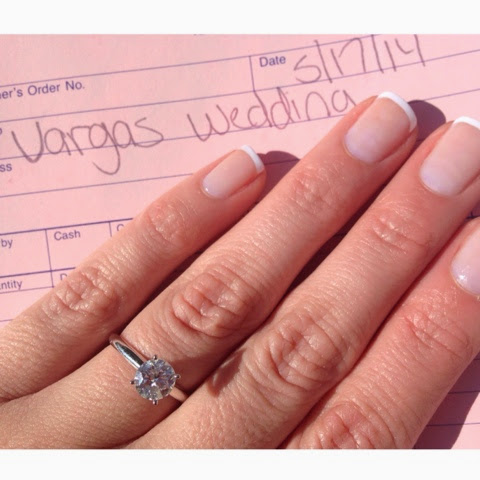 Date 5/17/14
er's Order No.
Vargas Wedding
ss
by Cash C
ntity